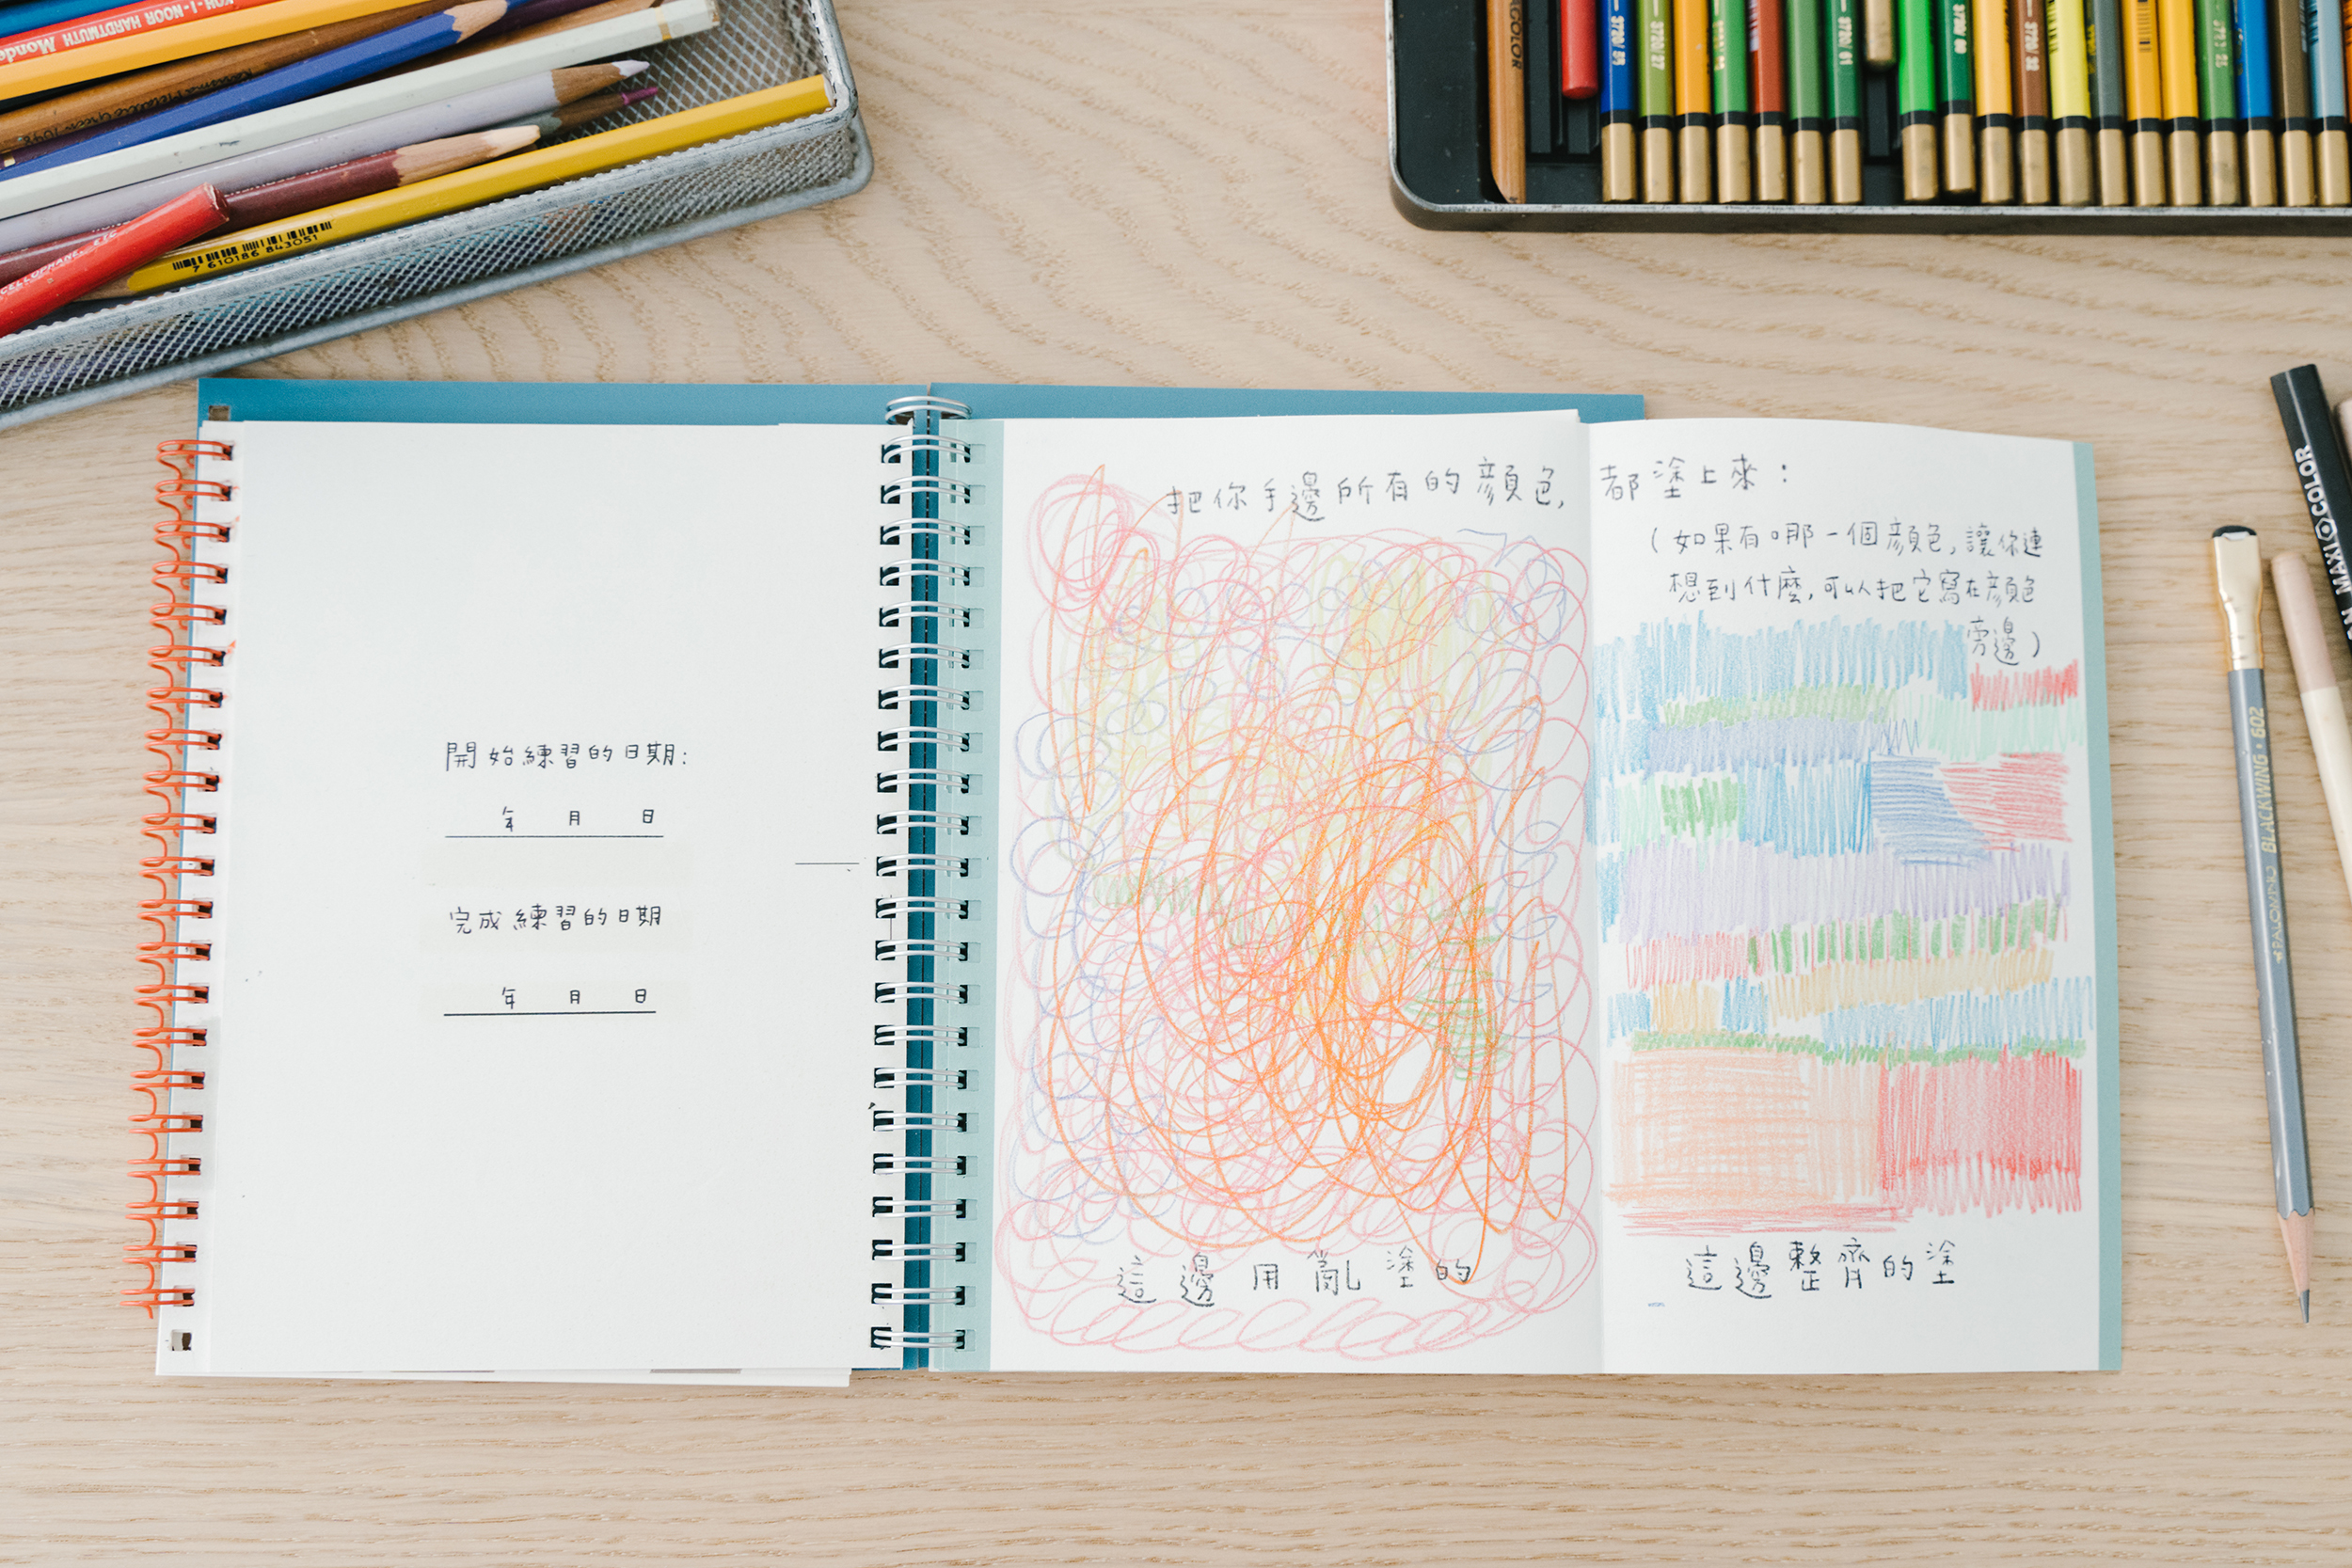 KOH-I-NOOR HARDTMUTH Monde
7 610186 843051
3720/ 27
3720/ 61
3720/ 32
開始練習的日期:
年 月 日
完成練習的日期
年 月 日
把你手邊所有的顏色,都塗上來:
(如果有哪一個顏色,讓你連
想到什麼,可以把它寫在顏色
旁邊)
這邊用亂塗的
這邊整齊的塗
PALOMINO BLACKWING · 602
MAXI COLOR